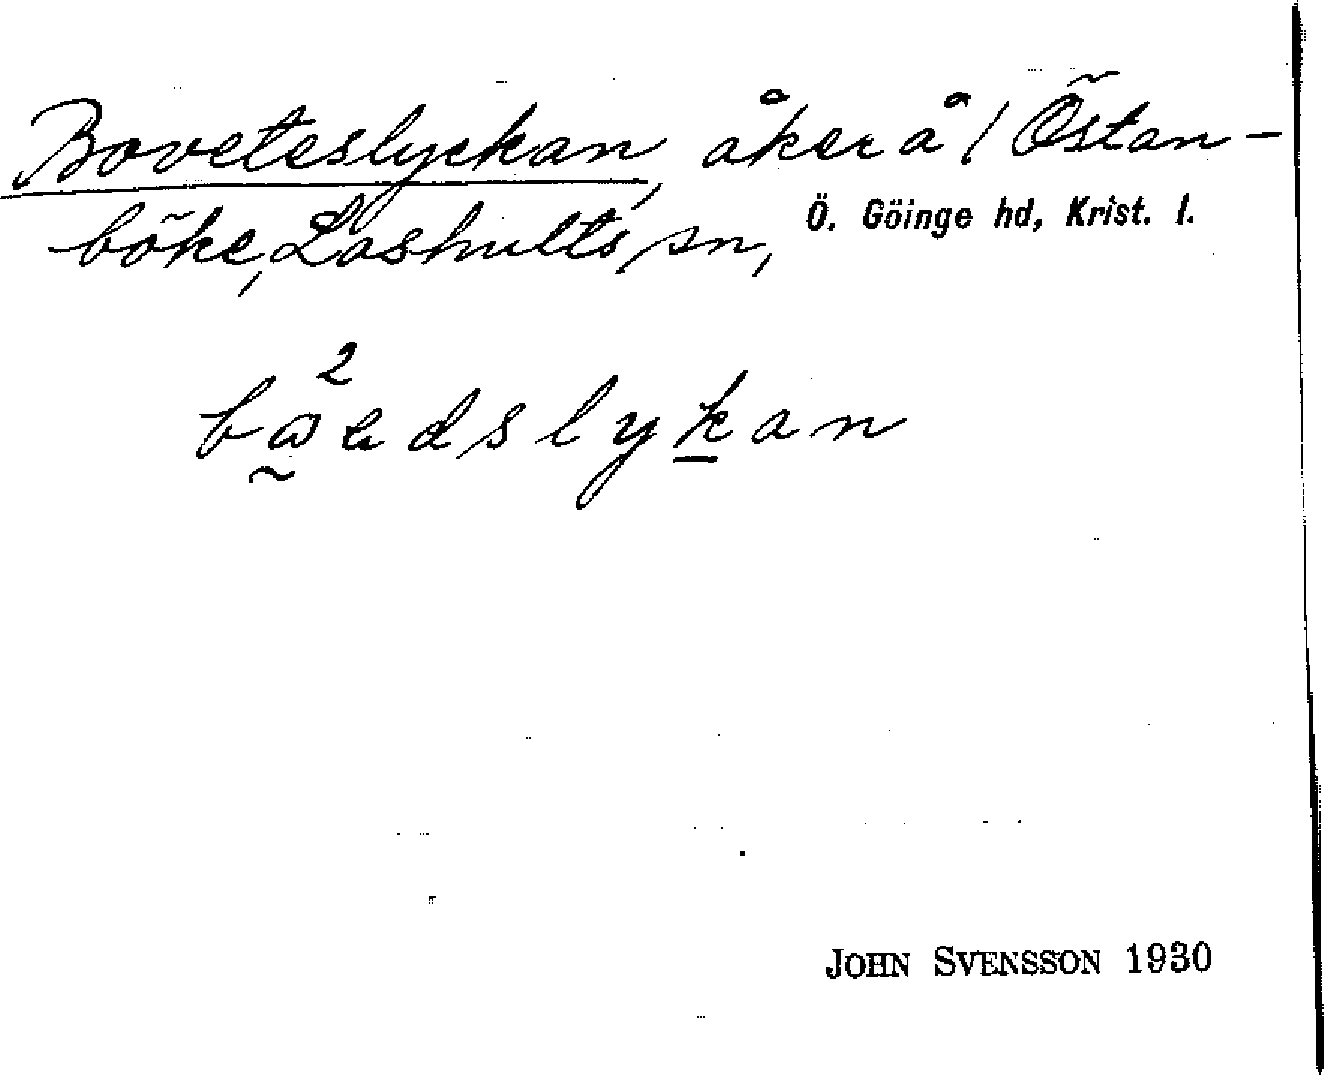 Boveteslyckan, åker å /1 Östan-
böke, Loshults sn, Ö. Göinge hd, Krist. l.
2
bωedslykan
JOHN SVENSSON 1930